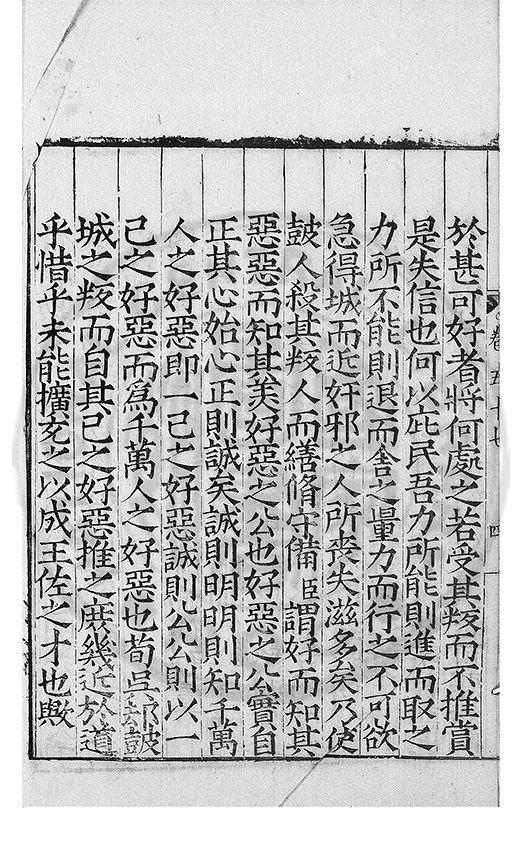 卷五十七
四
於甚可好者將何處之若受其叛而不推賞
是失信也何以庇民吾力所能則進而取之
力所不能則退而舍之量力而行之不可欲
急得城而近奸邪之人所喪失滋多矣乃使
皷人殺其叛人而繕脩守備臣謂好而知其
惡惡而知其美好惡之公也好惡之公實自
正其心始心正則誠矣誠則明明則知千萬
人之好惡即一己之好惡誠則公公則以一
己之好惡而爲千萬人之好惡也荀吳鄙皷
城之叛而自其己之好惡推之庶幾近於道
乎惜乎未能擴充之以成王佐之才也歟